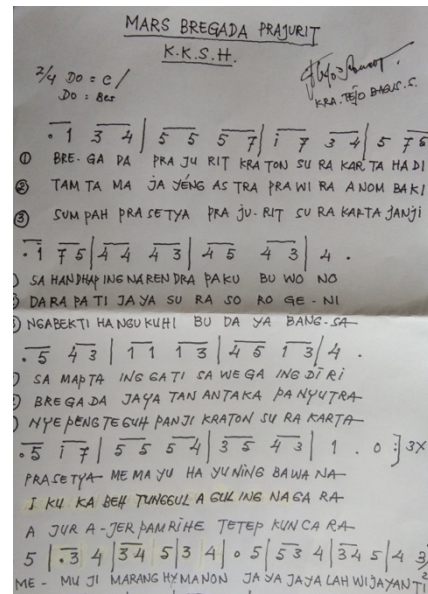 MARS BREGADA PRAJURIT
K.K.S.H.
2/4 DO = C /
DO = Bes
KRA. TEJO BAGUS. S.
. 1 3 4 | 5 5 5 7 | i 7 3 4 | 5 7 6
① BRE-GA DA PRA JU RIT KRATON SU RA KARTA HADI
② TAM TA MA JA YÉNG AS TRA PRA WI RA A NOM BAKI
③ SUM PAH PRA SETYA PRA JU-RIT SU RA KARTA JANJI
. 1 7 5 | 4 4 4 3 | 4 5 4 3 | 4 .
SA HANDHAP ING NARENDRA PAKU BU WO NO
DARA PATI JA YA SU RA SO RO GE - NI
NGABEKTI HANGUKUHI BU DA YA BANG-SA
. 5 4 3 | 1 1 1 3 | 4 5 1 3 | 4 .
SA MAPTA ING GATI SA WE GA ING DIRI
BRE GA DA JAYA TAN ANTAKA PA NYUTRA
NYE PENG TEGUH PANJI KRATON SU RA KARTA
. 5 i 7 | 5 5 5 4 | 3 5 4 3 | 1 . 0 :| 3X
PRASETYA ME MA YU HA YU NING BAWA NA
I KU KA BEH TUNGGUL A GUL ING NAGA RA
A JUR A-JER PAMRIHE TETEP KUN CA RA
5 | . 3 4 | 3 4 5 | 3 4 | 0 5 | 5 3 4 | 3 4 5 | 4 3
ME - MU JI MARANG HYMANON JA YA JAYA LAH WIJAYANTI